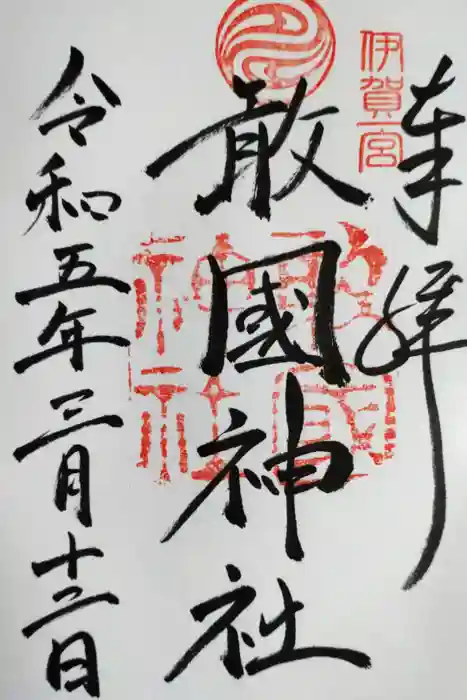 奉拝
伊賀一宮
敢國神社
敢國神社
令和五年三月十二日